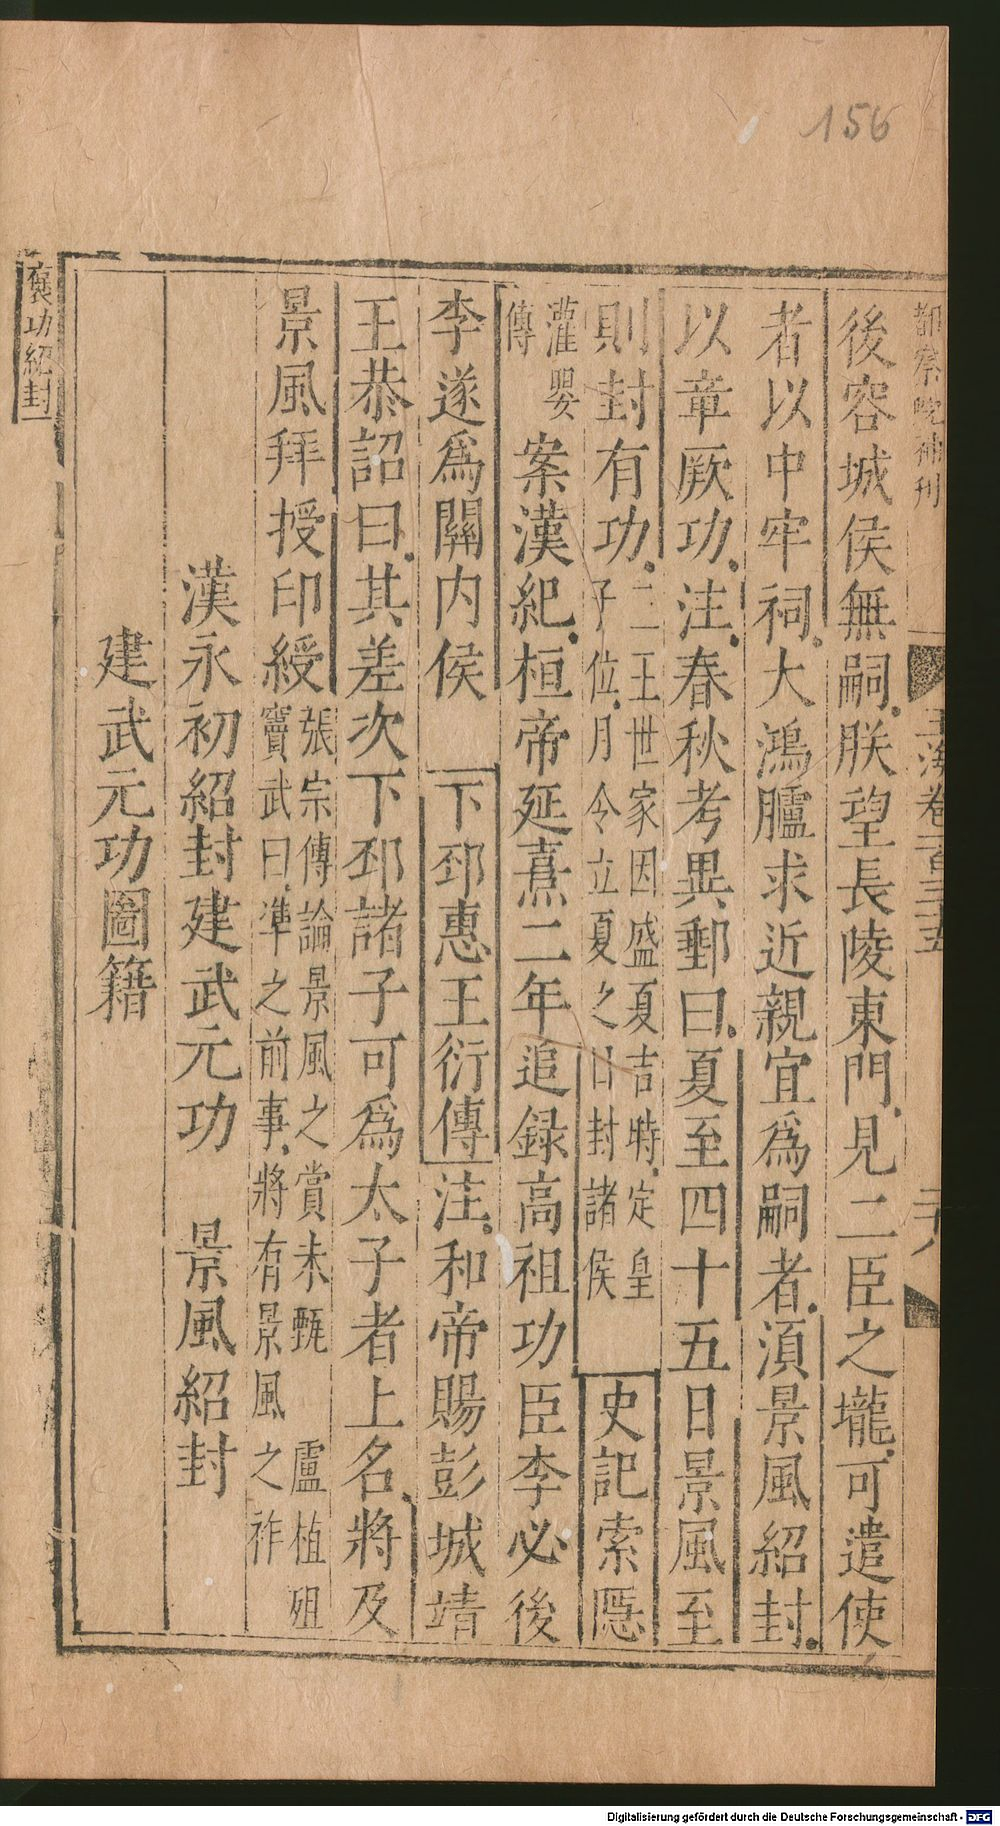 156
都察院補刊
玉海卷一百三十五
二十八
後容城侯無嗣朕望長陵東門見二臣之壠可遣使
者以中牢祠大鴻臚求近親宜爲嗣者須景風紹封
以章厥功注春秋考異郵曰夏至四十五日景風至
則封有功二王世家因盛夏吉時定皇
子位月令立夏之日封諸侯
史記索隱
灌嬰
傳
案漢紀桓帝延熹二年追録高祖功臣李必後
李遂爲關内侯 下邳惠王衍傳注和帝賜彭城靖
王恭詔曰其差次下邳諸子可爲太子者上名將及
景風拜授印綬張宗傳論景風之賞未甄 盧植殂
竇武曰準之前事將有景風之祚
漢永初紹封建武元功 景風紹封
建武元功圖籍
褒功紹封
Digitalisierung gefördert durch die Deutsche Forschungsgemeinschaft - DFG